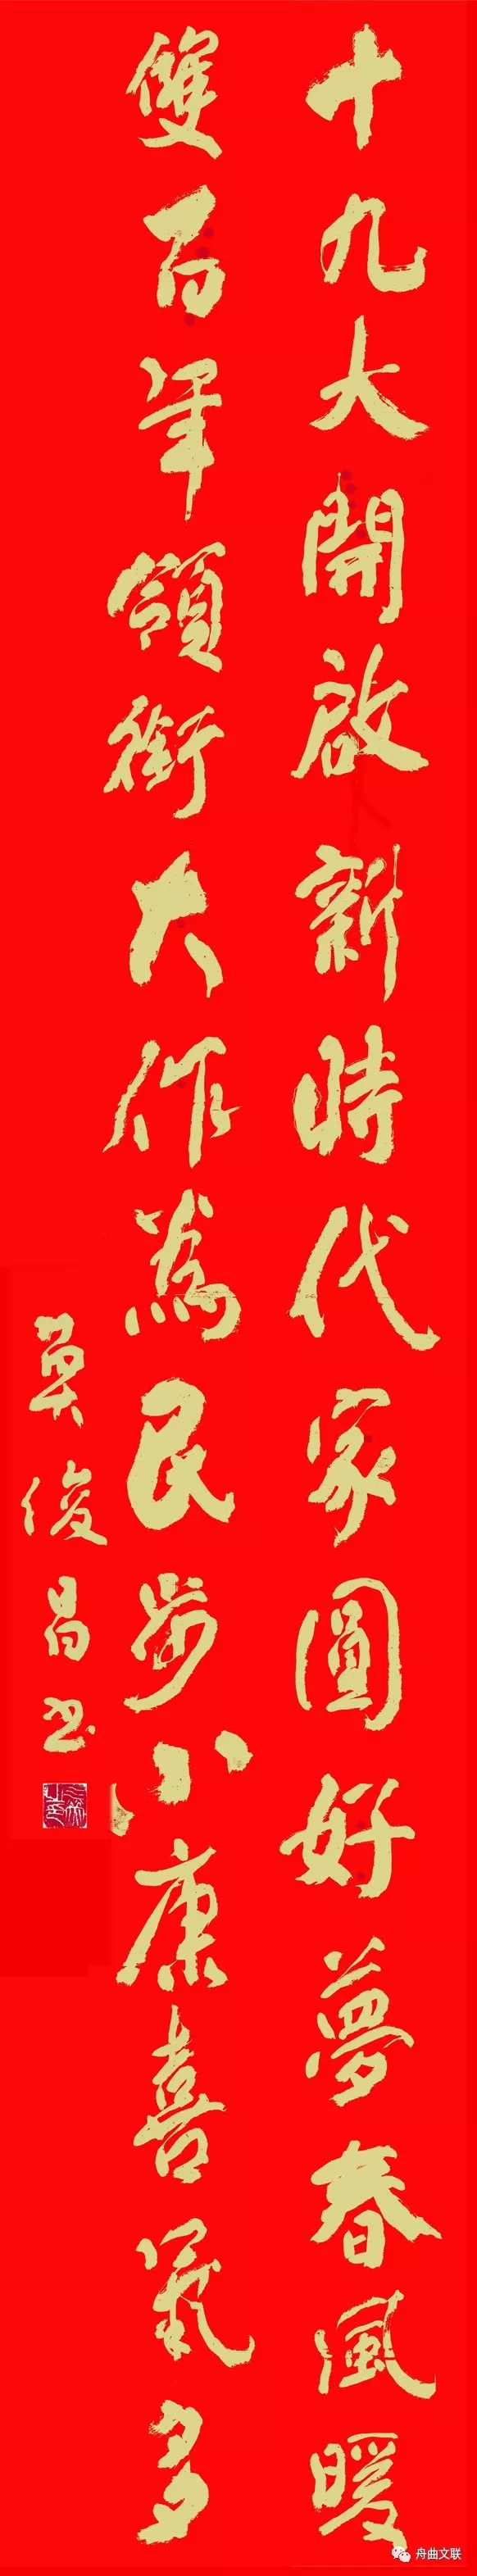 十九大開啟新時代家圓好夢春風暖
雙百年領銜大作為民步小康喜氣多
吳俊昌书
舟曲文联